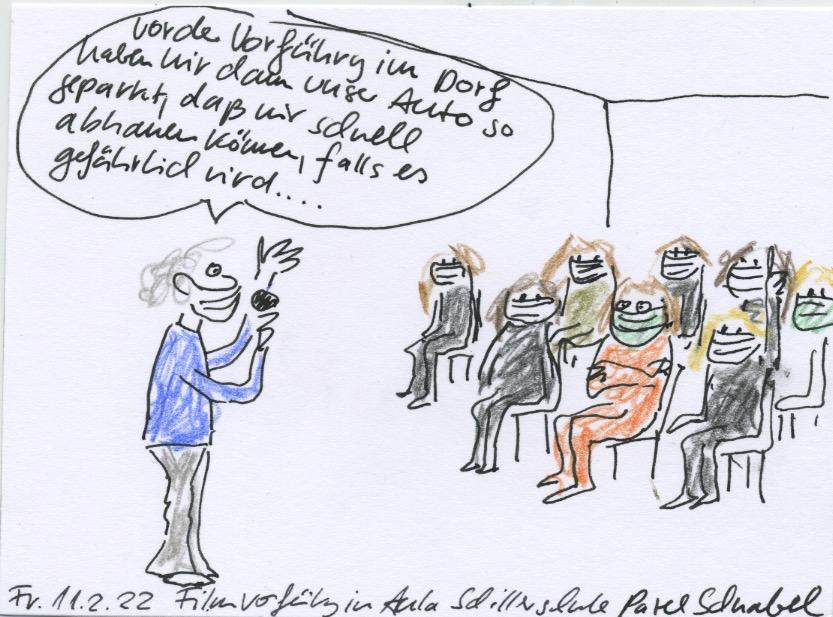 vorder Vorführg im Dorf
haben wir dann unser Auto so
geparkt, daß wir schnell
abhauen können, falls es
gefährlich wird....
Fr. 11.2.22 Filmvorführg in Aula Schillerschule Pavel Schnabel